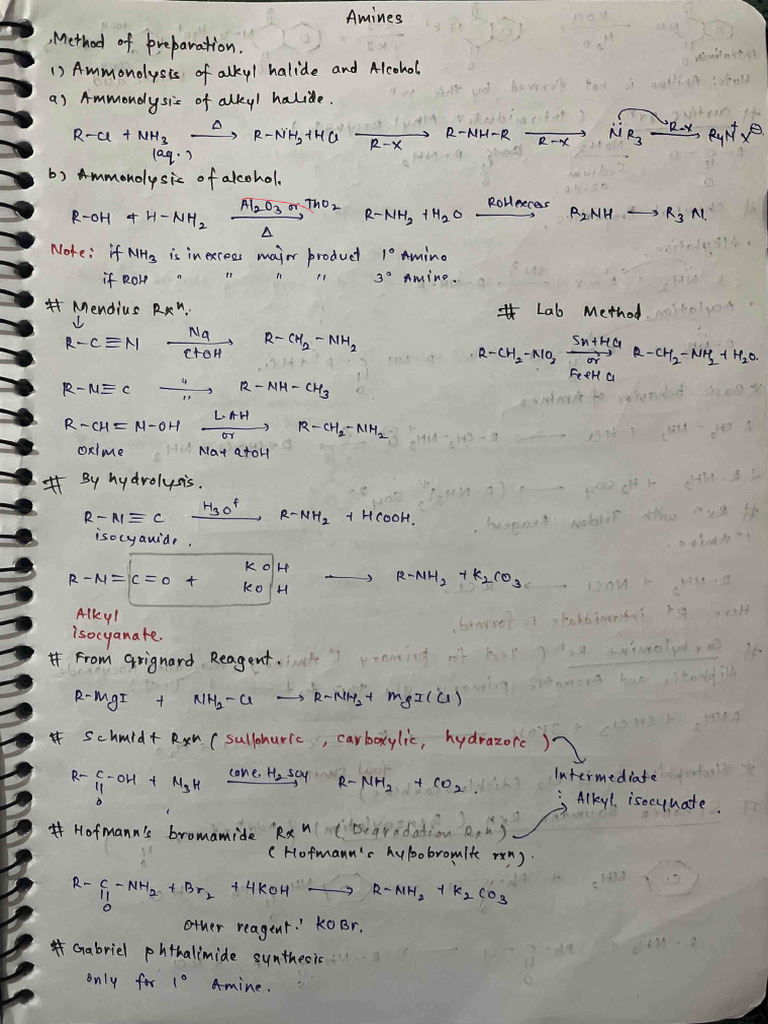 Amines
Method of preparation.
1) Ammonolysis of alkyl halide and Alcohol.
a) Ammonolysis of alkyl halide.
R-Cl + NH3 (aq.) —Δ→ R-NH2 + HCl —R-X→ R-NH-R —R-X→ NR3 —R-X→ R4N+ X⊖
b) Ammonolysis of alcohol.
R-OH + H-NH2 —Al2O3 or ThO2, Δ→ R-NH2 + H2O —ROH excess→ R2NH → R3N.
Note: if NH3 is in excess major product 1° Amine
if ROH " " " " 3° Amine.
# Mendius Rxn.
# Lab Method
R-C≡N —Na, EtOH→ R-CH2-NH2
R-CH2-NO2 —Sn+HCl or Fe+HCl→ R-CH2-NH2 + H2O.
R-N≡C —" "→ R-NH-CH3
R-CH=N-OH —LAH or Na+EtOH→ R-CH2-NH2
Oxime
# By hydrolysis.
R-N≡C —H3O+→ R-NH2 + HCOOH.
isocyanide.
R-N=C=O + KOH KOH → R-NH2 + K2CO3
Alkyl
isocyanate.
# From Grignard Reagent.
R-MgI + NH2-Cl → R-NH2 + MgI(Cl)
# Schmidt Rxn (sulphuric, carboxylic, hydrazoic)
R-C-OH + N3H —conc. H2SO4→ R-NH2 + CO2.
O
Intermediate
: Alkyl isocynate.
# Hofmann's bromamide Rxn (Degradation Rxn)
(Hofmann's hypobromite rxn).
R-C-NH2 + Br2 + 4KOH → R-NH2 + K2CO3
O
Other reagent: KOBr.
# Gabriel phthalimide synthesis
only for 1° Amine.